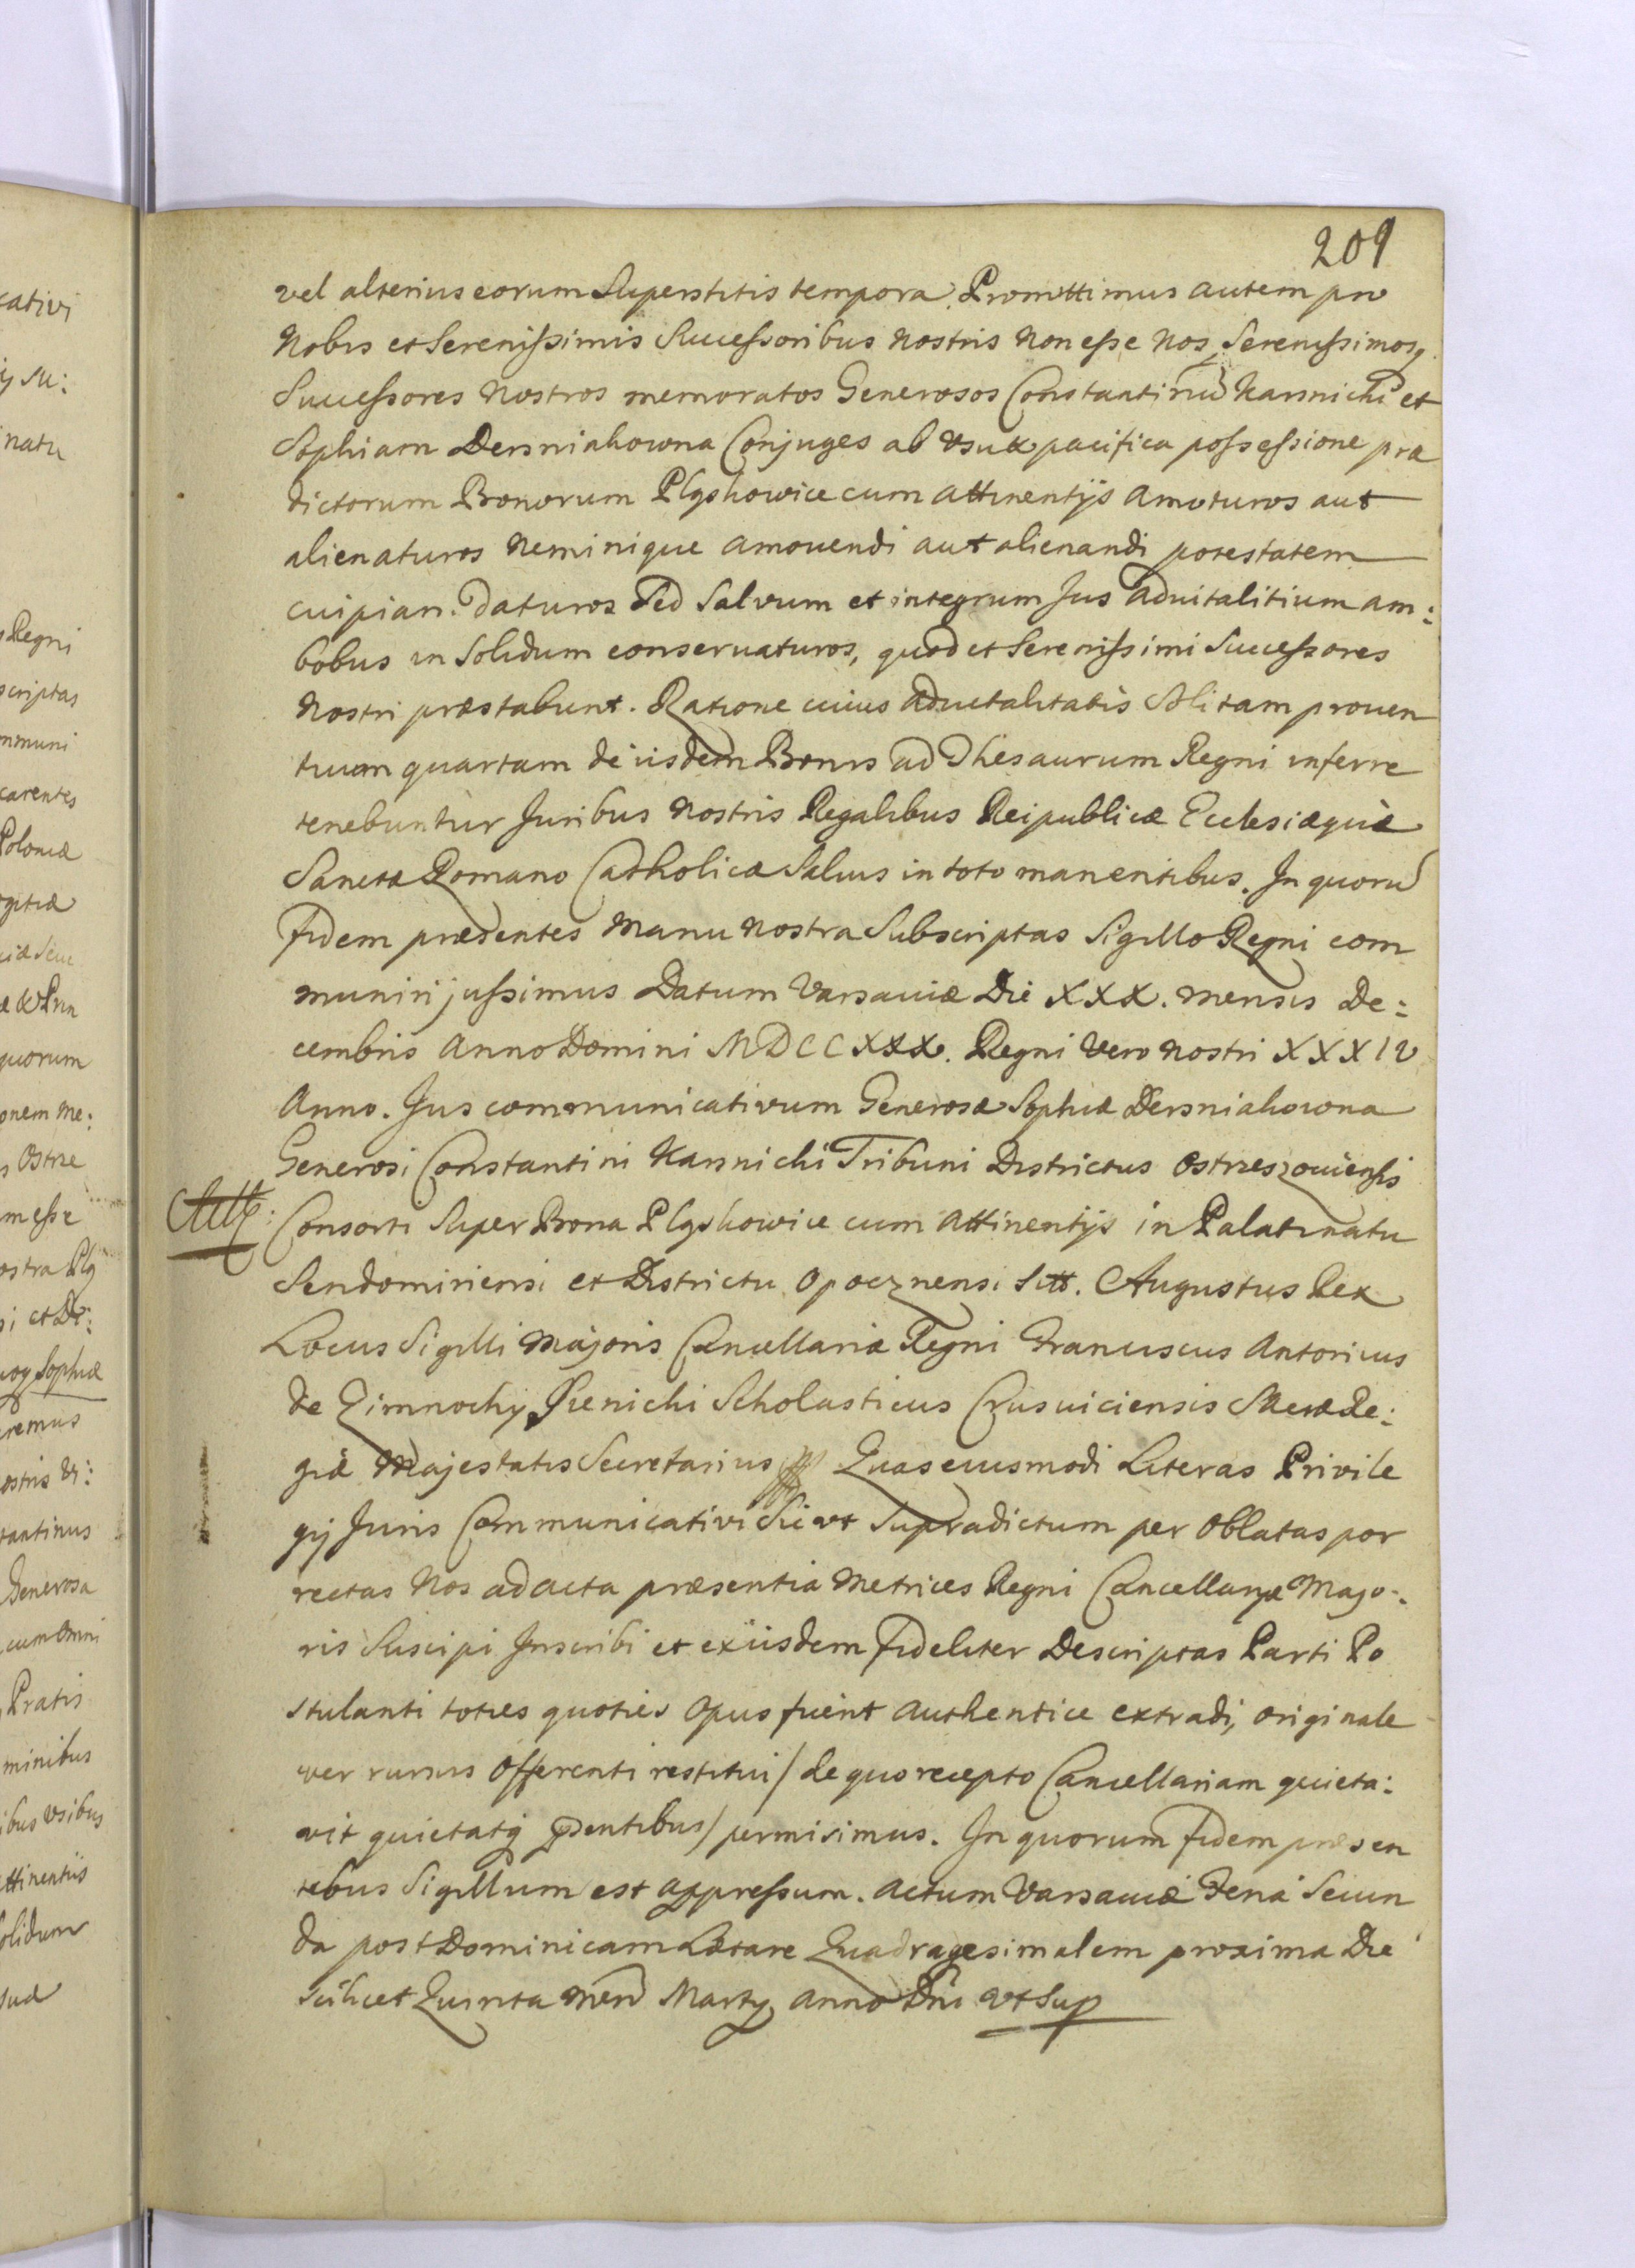 209
vel alterius eorum Superstitis tempora. Promittimus autem pro
Nobis et Serenissimis Successoribus nostris non esse Nos Serenissimosq.
Successores nostros memoratos Generosos Constantinū Karsnicki et
Sophiam Dersniakowna Conjuges ab usu & pacifica possessione præ
dictorum Bonorum Plyskowice cum attinentijs amoturos aut
alienaturos neminique amovendi aut alienandi potestatem
cuipiam daturos Sed Salvum et integrum Jus advitalitium am:
bobus in Solidum conservaturos, quod et Serenissimi Successores
Nostri præstabunt. Ratione cuius advitalitatis Solitam proven
tuum quartam de iisdem Bonis ad Thesaurum Regni inferre
tenebuntur Juribus nostris Regalibus Reipublicæ Ecclesiæquæ
Sanctæ Romano Catholicæ Salvis in toto manentibus. In quorū
fidem præsentes manu nostra Subscriptas Sigillo Regni com
munirij jussimus Datum Varsaviæ Die XXX. mensis De:
cembris Anno Domini MDCCXXX. Regni vero nostri XXXIV
Anno. Jus communicativum Generosæ Sophiæ Dersniakowna
Generosi Constantini Karsnicki Tribuni Districtus Ostrzeszoviensis
Consorti Super Bona Plyskowice cum Attinentijs in Palatinatu
Sendomiriensi et Districtu Opocznensi Sitt. Augustus Rex
Locus Sigilli Majoris Cancellariæ Regni Franciscus Antonius
de Zimnochy Pienichi Scholasticus Crusviciensis Sacræ Re:
giæ Majestatis Secretarius Quas eiusmodi Literas Privile
gij Juris Communicativi Sicut Supradictum per Oblatas por
rectas Nos ad acta præsentia Metrices Regni Cancellariæ Majo:
ris Suscipi Inscribi et ex iisdem fideliter Descriptas Parti Po
stulanti toties quoties Opus fuerit authentice extradi, originale
ver rursus Offerenti restitui / de quo recepto Cancellariam quieta:
vit quietatq p̄sentibus / permisimus. In quorum fidem præsen
tibus Sigillum est appressum. Actum Varsaviæ Feria Secun
da post Dominicam Lætare Quadragesimalem proxima Die
Scilicet Quinta Mens̄ Martij Anno Dn̄i Ut Sup